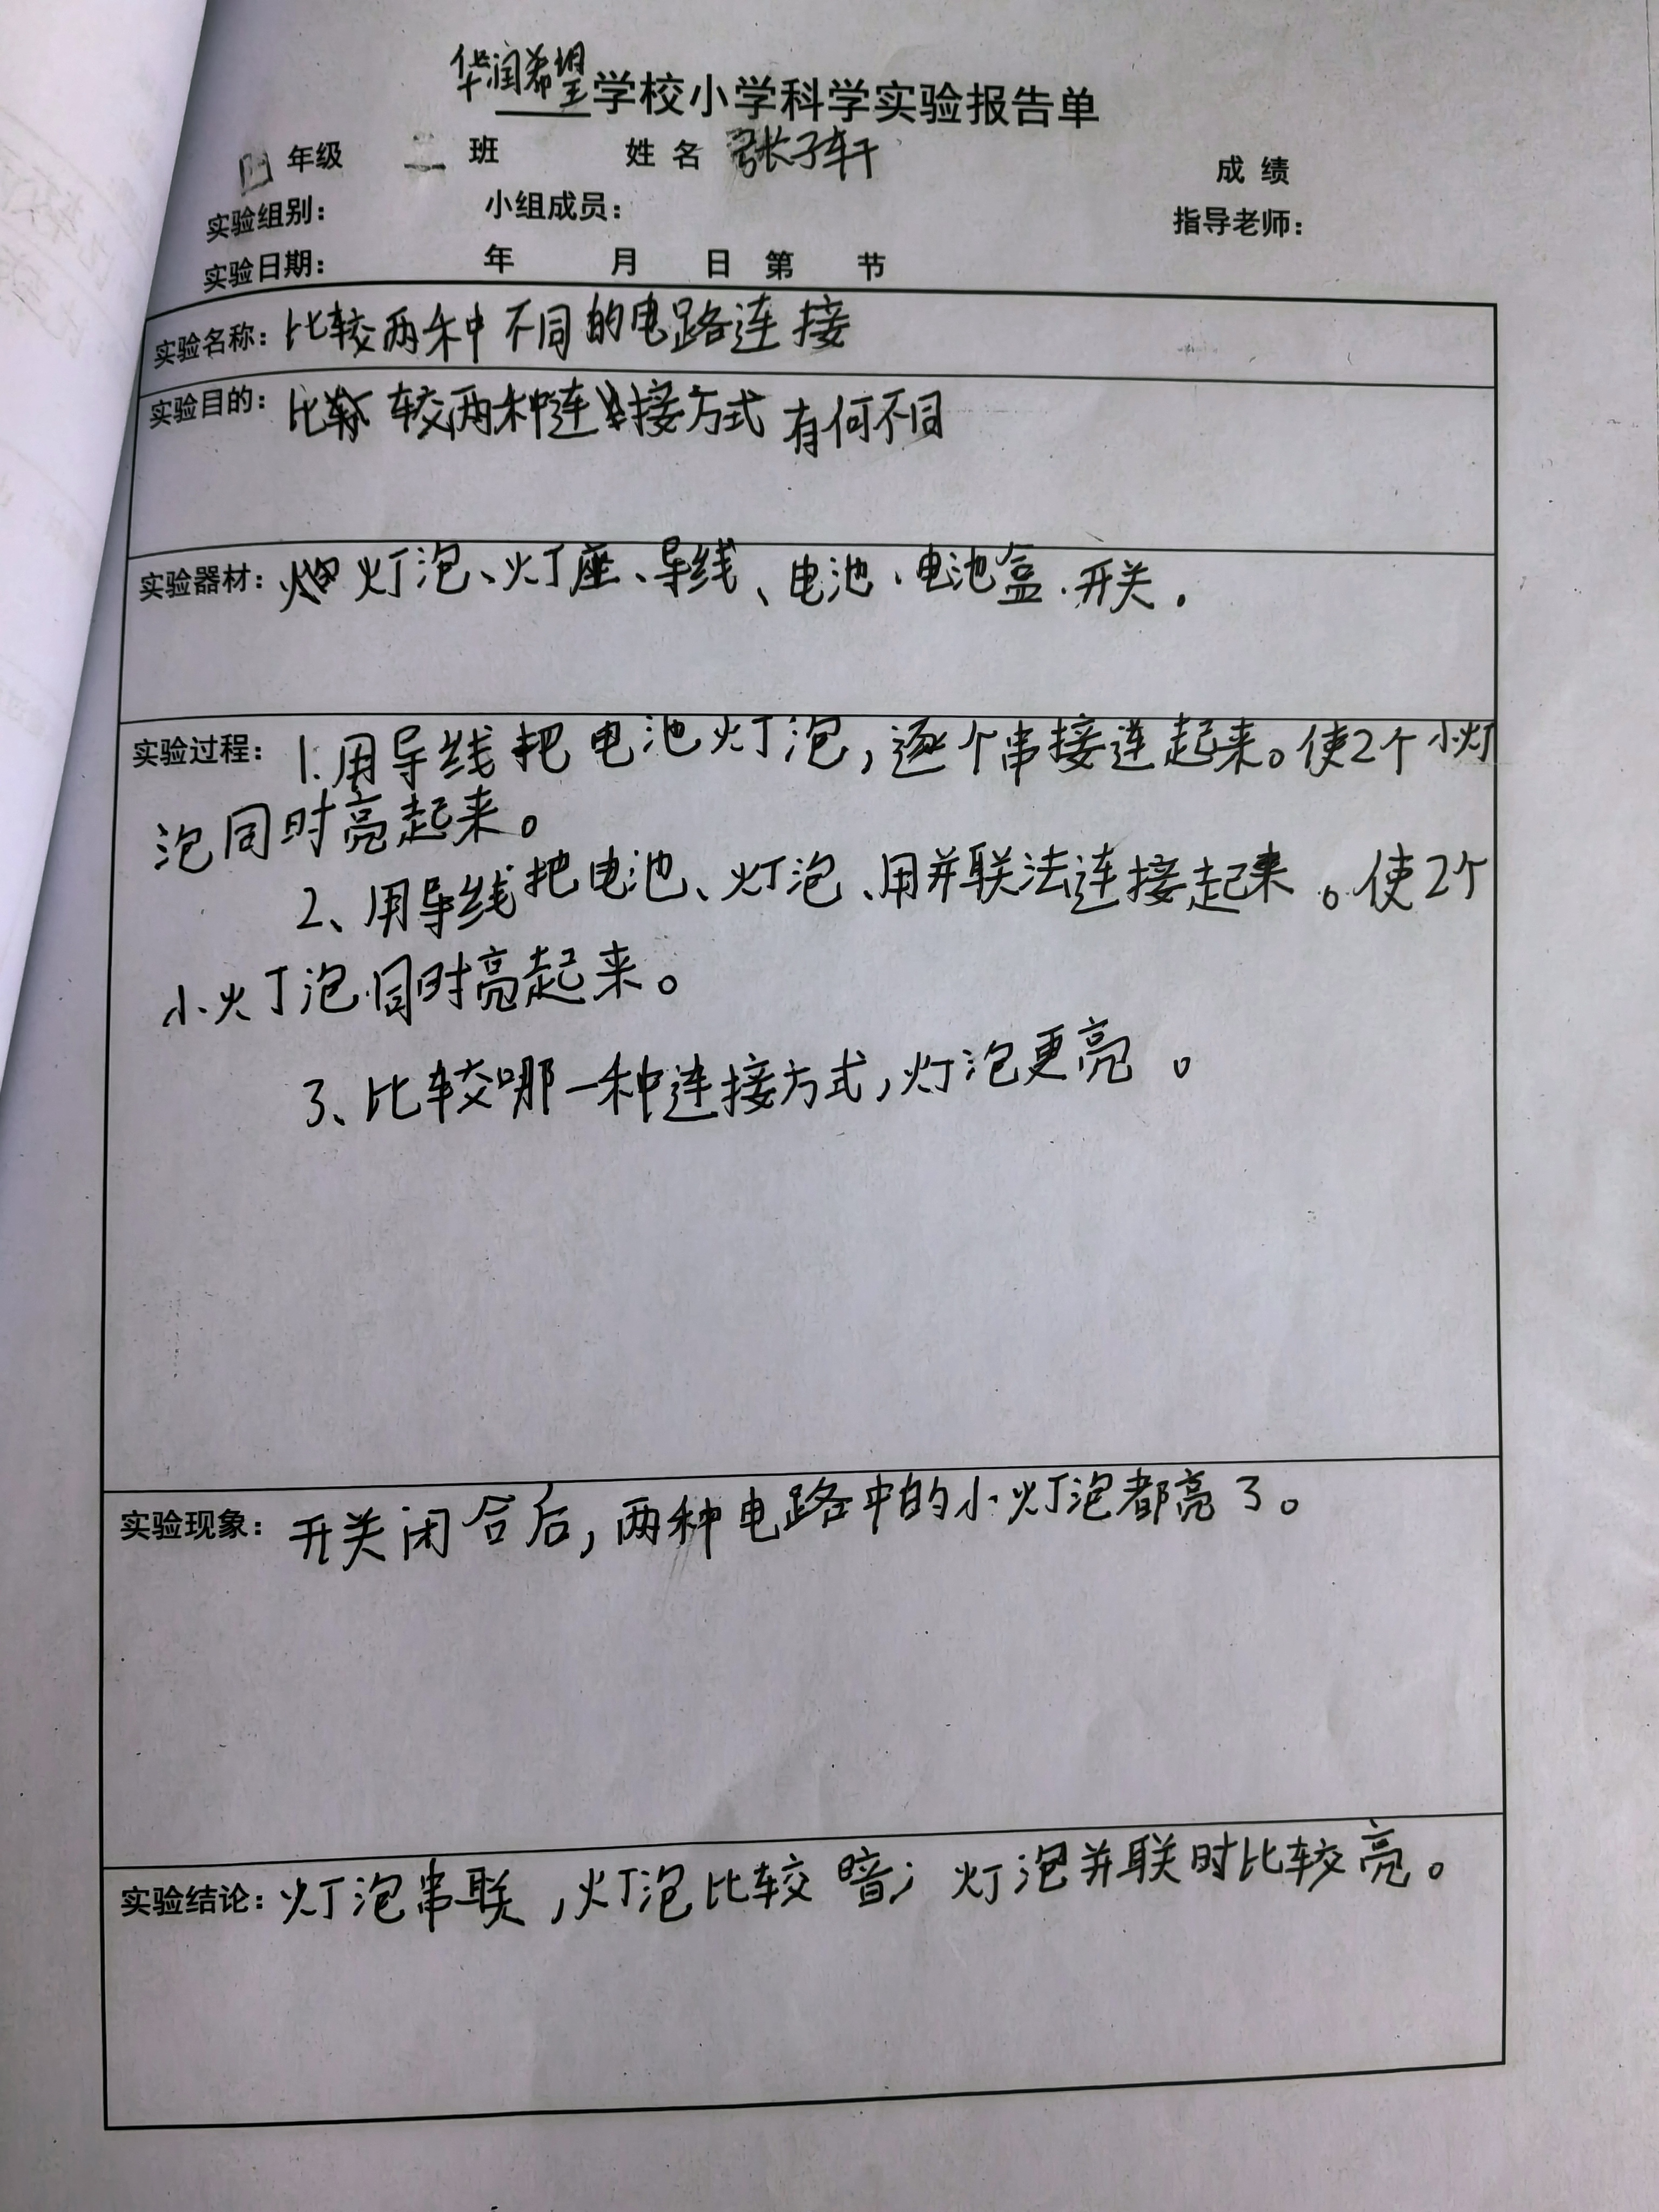 华润希望学校小学科学实验报告单
四年级 二班 姓名 张子轩 成绩
实验组别： 小组成员： 指导老师：
实验日期： 年 月 日 第 节
实验名称：比较两种不同的电路连接
实验目的：比较两种连接方式有何不同
实验器材：灯泡、灯座、导线、电池、电池盒.开关.
实验过程：1.用导线把电池灯泡，逐个串接连起来。使2个小灯
泡同时亮起来。
2、用导线把电池、灯泡、用并联法连接起来。使2个
小灯泡同时亮起来。
3、比较哪一种连接方式，灯泡更亮。
实验现象：开关闭合后，两种电路中的小灯泡都亮了。
实验结论：灯泡串联，灯泡比较暗；灯泡并联时比较亮。